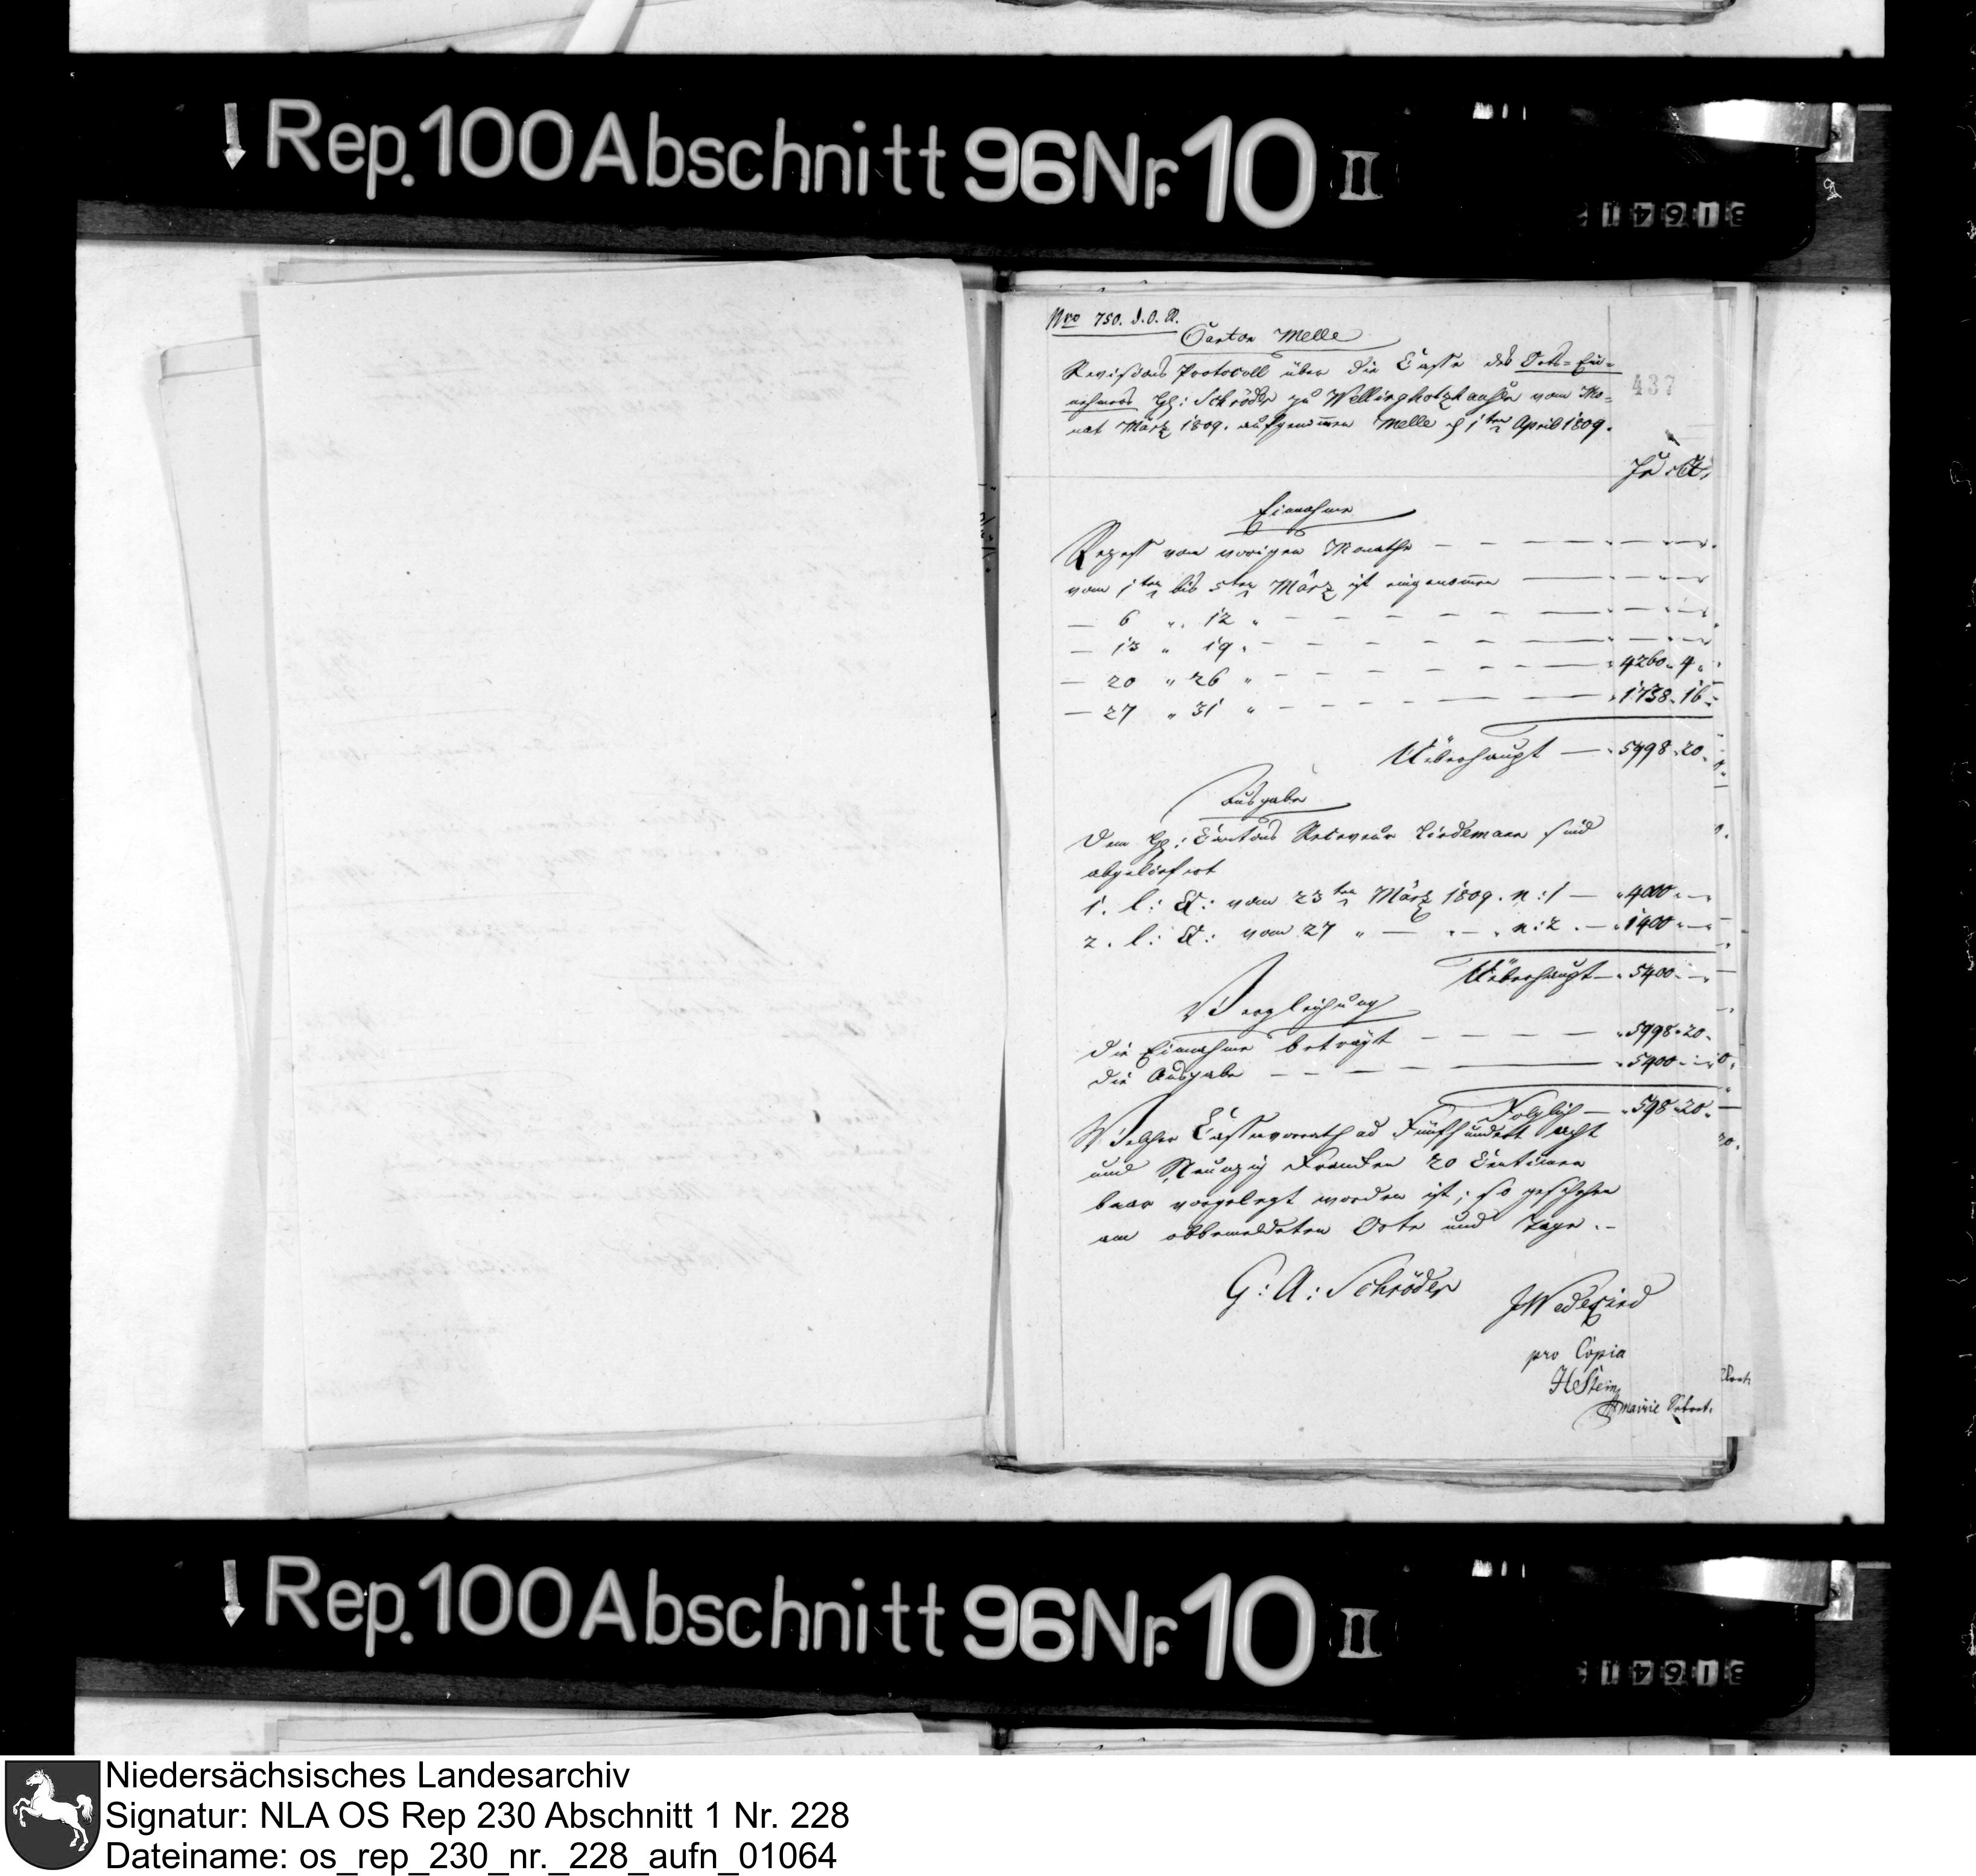 Rep. 100 Abschnitt 96 Nr. 10 II
Nro 750. d. O. R.
Canton Melle
437
Revisions Protocoll über die Casse des Orts-Ein-
nehmers H: Schröder zu Wellingholzhausen vom Mo-
nat März 1809. aufgenommen Melle d 1ten April 1809.
Fr. Ct.
Einnahme
Rezess vom vorigen Monathe — — — —
vom 1ten bis 5ten März ist eingenommen — — —
— 6 " 12 " — — — —
— 13 " 19 " — — — —
— 20 " 26 " — — — — 4260. 4.
— 27 " 31 " — — — — 1738. 16
Überhaupt — 5998. 20.
Ausgabe
Dem H: Cantons Receveur Lindemann sind
abgeliefert
1. l: Q: vom 23ten März 1809. n: 1 — 4000. —
2. l: Q: vom 27 " — " — n: 2. — 1400. —
Überhaupt — 5400. —
Vergleichung
die Einnahme beträgt — — — 5998. 20.
die Ausgabe — — — — 5400. —
Folglich — 598. 20.
Welcher Cassenvorrath ad Fünfhundert acht
und Neunzig Franken 20 Centimen
baar vorgelegt worden ist; so geschehen
am obbemeldeten Orte und Tage. —
G: A: Schröder
JWedekind
pro Copia
HStein
mairie Secret.
Rep. 100 Abschnitt 96 Nr. 10 II
Niedersächsisches Landesarchiv
Signatur: NLA OS Rep 230 Abschnitt 1 Nr. 228
Dateiname: os_rep_230_nr._228_aufn_01064